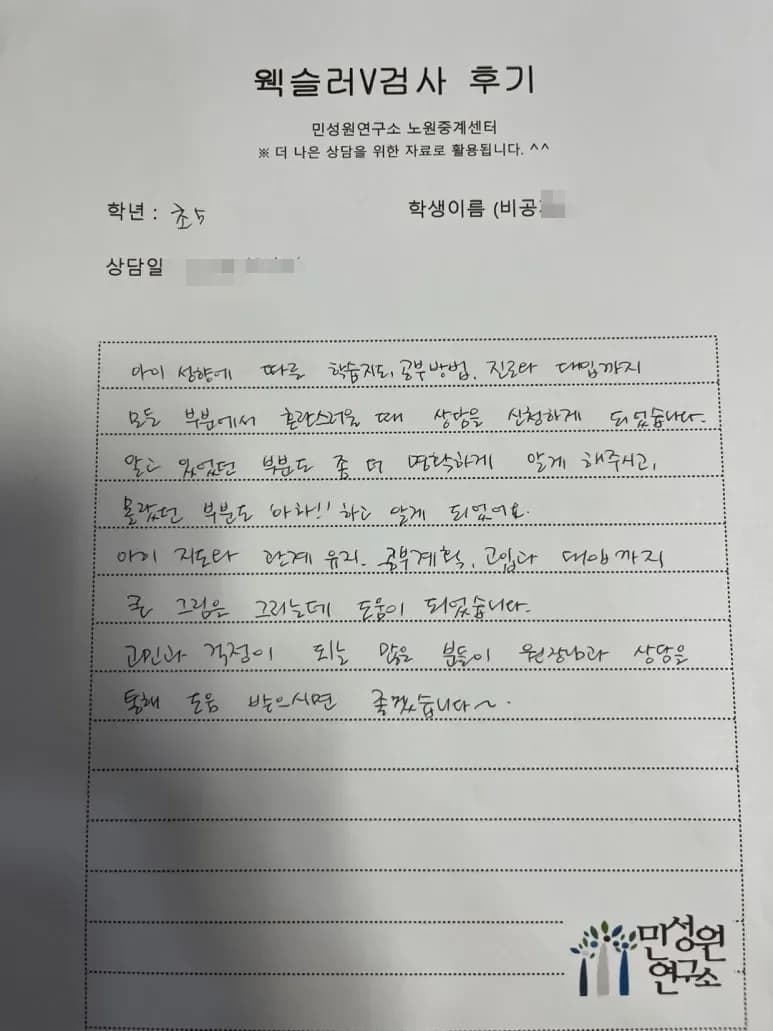 웩슬러V검사 후기
민성원연구소 노원중계센터
※ 더 나은 상담을 위한 자료로 활용됩니다. ^^
학년 : 초5
학생이름 (비공
상담일
아이 성향에 따른 학습지도, 공부방법, 진로와 대입까지
모든 부분에서 혼란스러울 때 상담을 신청하게 되었습니다.
알고 있었던 부분도 좀 더 명확하게 알게 해주시고,
몰랐던 부분도 '아하!!' 하고 알게 되었어요.
아이 지도와 관계 유지. 공부계획, 고입과 대입까지
큰 그림을 그리는데 도움이 되었습니다.
고민과 걱정이 되는 많은 분들이 원장님과 상담을
통해 도움 받으시면 좋겠습니다~.
민성원
연구소